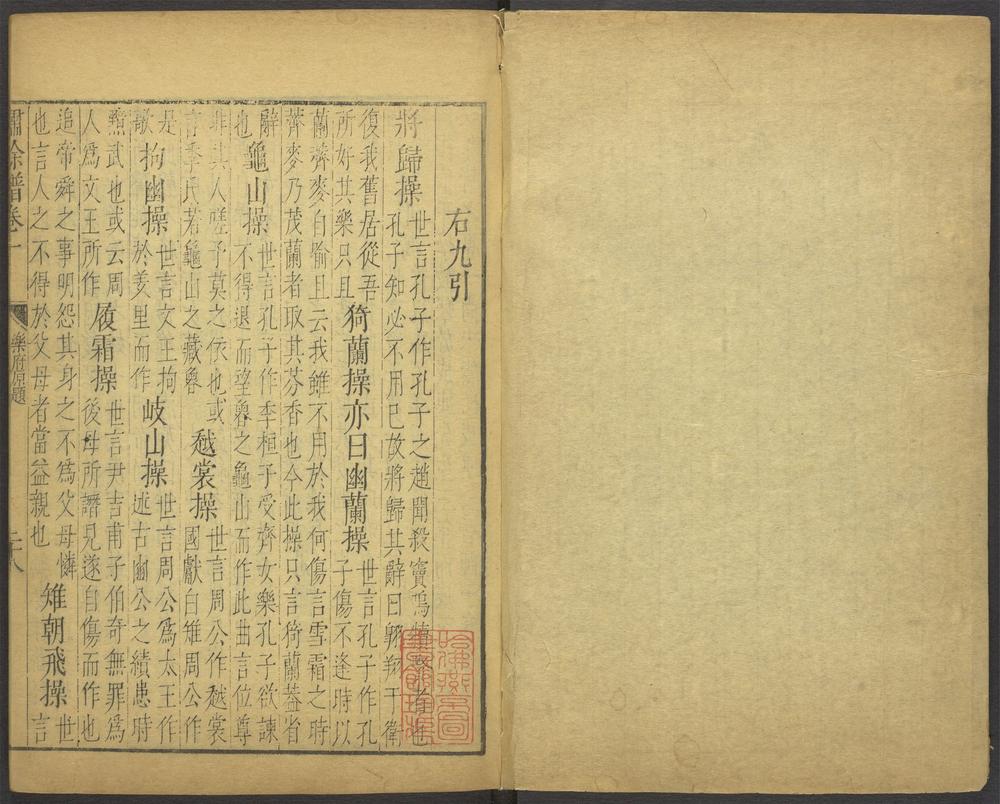 右九引
將歸操
世言孔子作孔子之趙聞殺竇鳴犢賢者也
孔子知必不用已故將歸其辭曰翺翔于衛
復我舊居從吾
所好其樂只且
猗蘭操亦曰幽蘭操
世言孔子作孔
子傷不逢時以
蘭薺麥自喻且云我雖不用於我何傷言雪霜之時
薺麥乃茂蘭者取其芬香也今此操只言猗蘭蓋省
辭
也
龜山操
世言孔子作季桓子受齊女樂孔子欲諫
不得退而望魯之龜山而作此曲言位尊
非其人嗟予莫之依也或
言季氏若龜山之蔽魯
越裳操
世言周公作越裳
國獻白雉周公作
是
歌
拘幽操
世言文王拘
於羑里而作
岐山操
世言周公爲太王作
述古幽公之績患時
煞武也或云周
人爲文王所作
履霜操
世言尹吉甫子伯奇無罪爲
後母所譖見遂自傷而作也
追帝舜之事明怨其身之不爲父母憐
也言人之不得於父母者當益親也
雉朝飛操
世
言
嘯餘譜卷一
樂府原題
二十八
哈佛燕京圖
書館珍藏